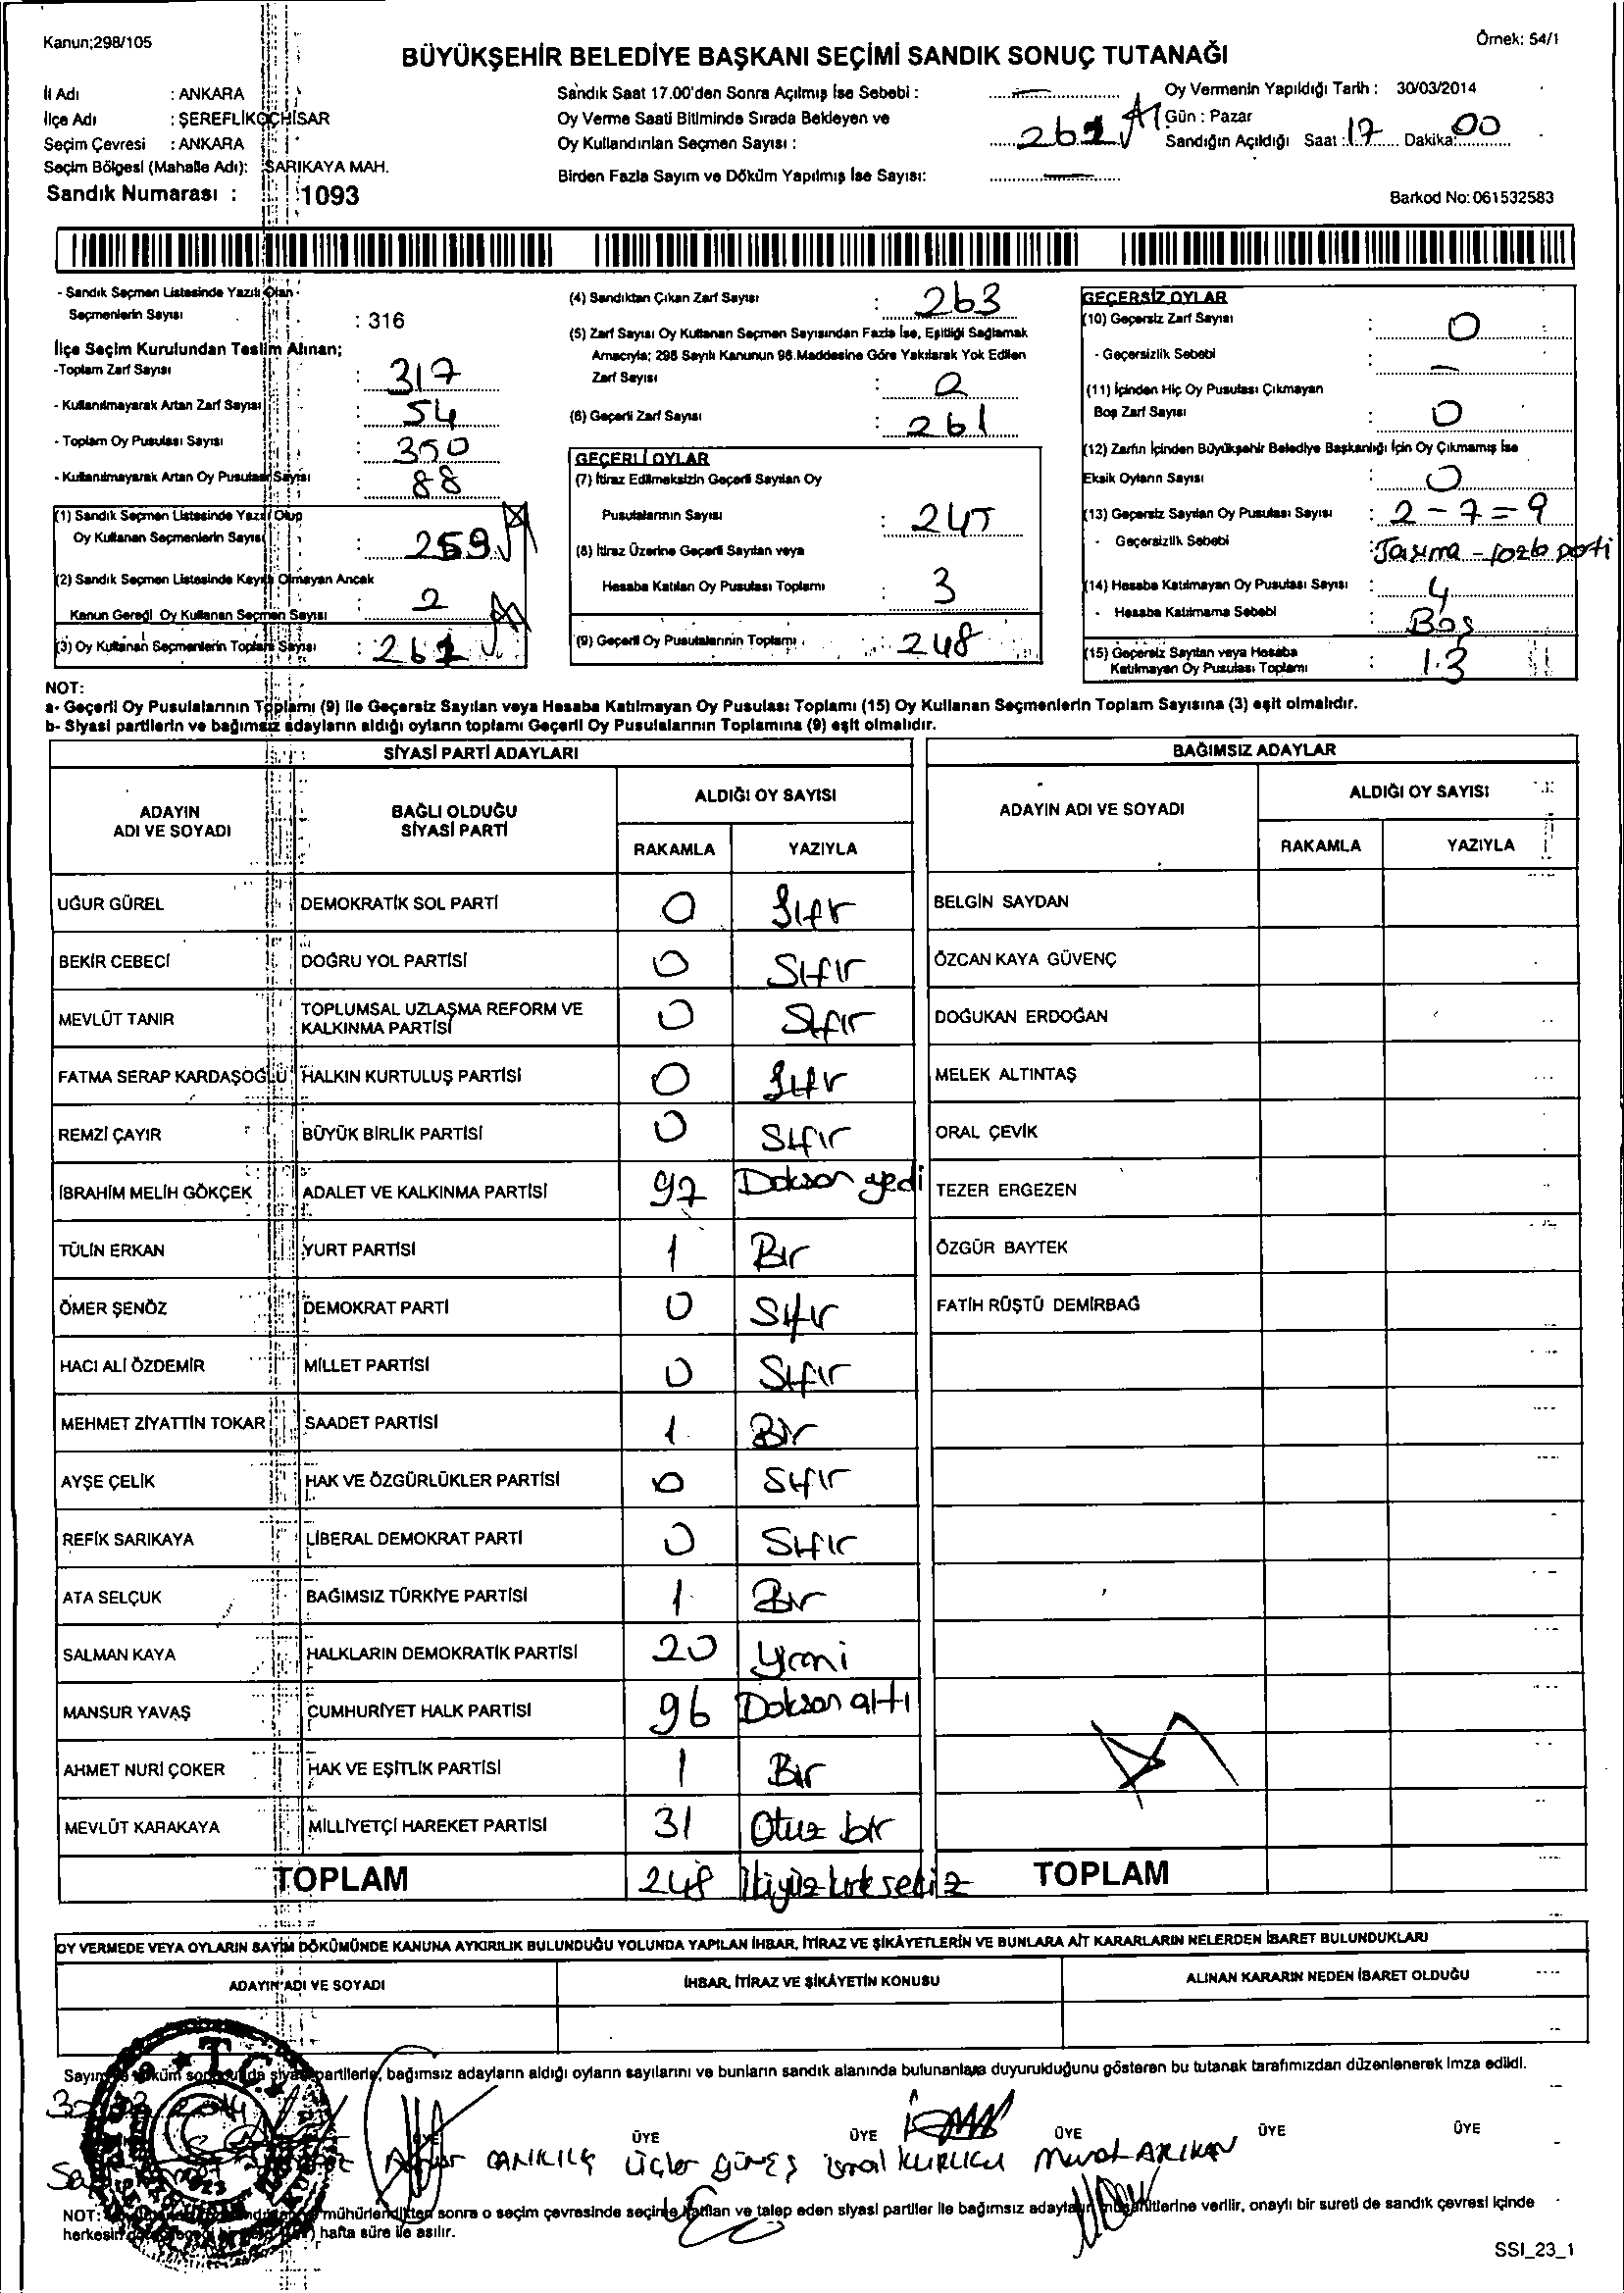 Kanun;298/105
Örnek: 54/1
BÜYÜKŞEHİR BELEDİYE BAŞKANI SEÇİMİ SANDIK SONUÇ TUTANAĞI
İl Adı : ANKARA
İlçe Adı : ŞEREFLİKOÇHİSAR
Seçim Çevresi : ANKARA
Seçim Bölgesi (Mahalle Adı): SARIKAYA MAH.
Sandık Numarası : 1093
Sandık Saat 17.00'den Sonra Açılmış İse Sebebi :
Oy Verme Saati Bitiminde Sırada Bekleyen ve
Oy Kullandırılan Seçmen Sayısı : 261
Birden Fazla Sayım ve Döküm Yapılmış İse Sayısı:
Oy Vermenin Yapıldığı Tarih : 30/03/2014
Gün : Pazar
Sandığın Açıldığı Saat : 17 Dakika: 00
Barkod No: 061532583
- Sandık Seçmen Listesinde Yazılı Olan
Seçmenlerin Sayısı : 316
İlçe Seçim Kurulundan Teslim Alınan;
-Toplam Zarf Sayısı : 317
- Kullanılmayarak Artan Zarf Sayısı : 54
- Toplam Oy Pusulası Sayısı : 350
- Kullanılmayarak Artan Oy Pusulası Sayısı : 88
(1) Sandık Seçmen Listesinde Yazılı Olup
Oy Kullanan Seçmenlerin Sayısı : 259
(2) Sandık Seçmen Listesinde Kayıtlı Olmayan Ancak
Kanun Gereği Oy Kullanan Seçmen Sayısı : 2
(3) Oy Kullanan Seçmenlerin Toplam Sayısı : 261
(4) Sandıktan Çıkan Zarf Sayısı : 263
(5) Zarf Sayısı Oy Kullanan Seçmen Sayısından Fazla İse, Eşitliği Sağlamak
Amacıyla; 298 Sayılı Kanunun 98.Maddesine Göre Yakılarak Yok Edilen
Zarf Sayısı : 2
(6) Geçerli Zarf Sayısı : 261
GEÇERLİ OYLAR
(7) İtiraz Edilmeksizin Geçerli Sayılan Oy
Pusulalarının Sayısı : 245
(8) İtiraz Üzerine Geçerli Sayılan veya
Hesaba Katılan Oy Pusulası Toplamı : 3
(9) Geçerli Oy Pusulalarının Toplamı : 248
GEÇERSİZ OYLAR
(10) Geçersiz Zarf Sayısı : 0
- Geçersizlik Sebebi : —
(11) İçinden Hiç Oy Pusulası Çıkmayan
Boş Zarf Sayısı : 0
(12) Zarfın İçinden Büyükşehir Belediye Başkanlığı İçin Oy Çıkmamış İse
Eksik Oyların Sayısı : 0
(13) Geçersiz Sayılan Oy Pusulası Sayısı : 2 - 7 = 9
- Geçersizlik Sebebi : Taşıma - fazla parti
(14) Hesaba Katılmayan Oy Pusulası Sayısı : 4
- Hesaba Katılmama Sebebi : Boş
(15) Geçersiz Sayılan veya Hesaba
Katılmayan Oy Pusulası Toplamı : 13
NOT:
a- Geçerli Oy Pusulalarının Toplamı (9) ile Geçersiz Sayılan veya Hesaba Katılmayan Oy Pusulası Toplamı (15) Oy Kullanan Seçmenlerin Toplam Sayısına (3) eşit olmalıdır.
b- Siyasi partilerin ve bağımsız adayların aldığı oyların toplamı Geçerli Oy Pusulalarının Toplamına (9) eşit olmalıdır.
SİYASİ PARTİ ADAYLARI
BAĞIMSIZ ADAYLAR
ADAYIN ADI VE SOYADI
BAĞLI OLDUĞU SİYASİ PARTİ
ALDIĞI OY SAYISI
RAKAMLA YAZIYLA
ADAYIN ADI VE SOYADI
ALDIĞI OY SAYISI
RAKAMLA YAZIYLA
UĞUR GÜREL DEMOKRATİK SOL PARTİ 0 Sıfır BELGİN SAYDAN
BEKİR CEBECİ DOĞRU YOL PARTİSİ 0 Sıfır ÖZCAN KAYA GÜVENÇ
MEVLÜT TANIR TOPLUMSAL UZLAŞMA REFORM VE KALKINMA PARTİSİ 0 Sıfır DOĞUKAN ERDOĞAN
FATMA SERAP KARDAŞOĞLU HALKIN KURTULUŞ PARTİSİ 0 Sıfır MELEK ALTINTAŞ
REMZİ ÇAYIR BÜYÜK BİRLİK PARTİSİ 0 Sıfır ORAL ÇEVİK
İBRAHİM MELİH GÖKÇEK ADALET VE KALKINMA PARTİSİ 97 Doksan yedi TEZER ERGEZEN
TÜLİN ERKAN YURT PARTİSİ 1 Bir ÖZGÜR BAYTEK
ÖMER ŞENÖZ DEMOKRAT PARTİ 0 Sıfır FATİH RÜŞTÜ DEMİRBAĞ
HACI ALİ ÖZDEMİR MİLLET PARTİSİ 0 Sıfır
MEHMET ZİYATTİN TOKAR SAADET PARTİSİ 1 Bir
AYŞE ÇELİK HAK VE ÖZGÜRLÜKLER PARTİSİ 0 Sıfır
REFİK SARIKAYA LİBERAL DEMOKRAT PARTİ 0 Sıfır
ATA SELÇUK BAĞIMSIZ TÜRKİYE PARTİSİ 1 Bir
SALMAN KAYA HALKLARIN DEMOKRATİK PARTİSİ 20 Yirmi
MANSUR YAVAŞ CUMHURİYET HALK PARTİSİ 96 Doksan altı
AHMET NURİ ÇOKER HAK VE EŞİTLİK PARTİSİ 1 Bir
MEVLÜT KARAKAYA MİLLİYETÇİ HAREKET PARTİSİ 31 Otuz bir
TOPLAM 248 İkiyüz kırk sekiz TOPLAM
OY VERMEDE VEYA OYLARIN SAYIM DÖKÜMÜNDE KANUNA AYKIRILIK BULUNDUĞU YOLUNDA YAPILAN İHBAR, İTİRAZ VE ŞİKÂYETLERİN VE BUNLARA AİT KARARLARIN NELERDEN İBARET BULUNDUKLARI
ADAYIN ADI VE SOYADI İHBAR, İTİRAZ VE ŞİKÂYETİN KONUSU ALINAN KARARIN NEDEN İBARET OLDUĞU
T.C.
partilerle, bağımsız adayların aldığı oyların sayılarını ve bunların sandık alanında bulunanlara duyurulduğunu gösteren bu tutanak tarafımızdan düzenlenerek imza edildi.
ÜYE ÜYE ÜYE ÜYE ÜYE ÜYE
Üçler GÜNEŞ İsmail KURUCU Murat ARIKAN
NOT: mühürlendikten sonra o seçim çevresinde seçime katılan ve talep eden siyasi partiler ile bağımsız adayların müşahitlerine verilir, onaylı bir sureti de sandık çevresi içinde
herkesin hafta süre ile asılır.
SSI_23_1